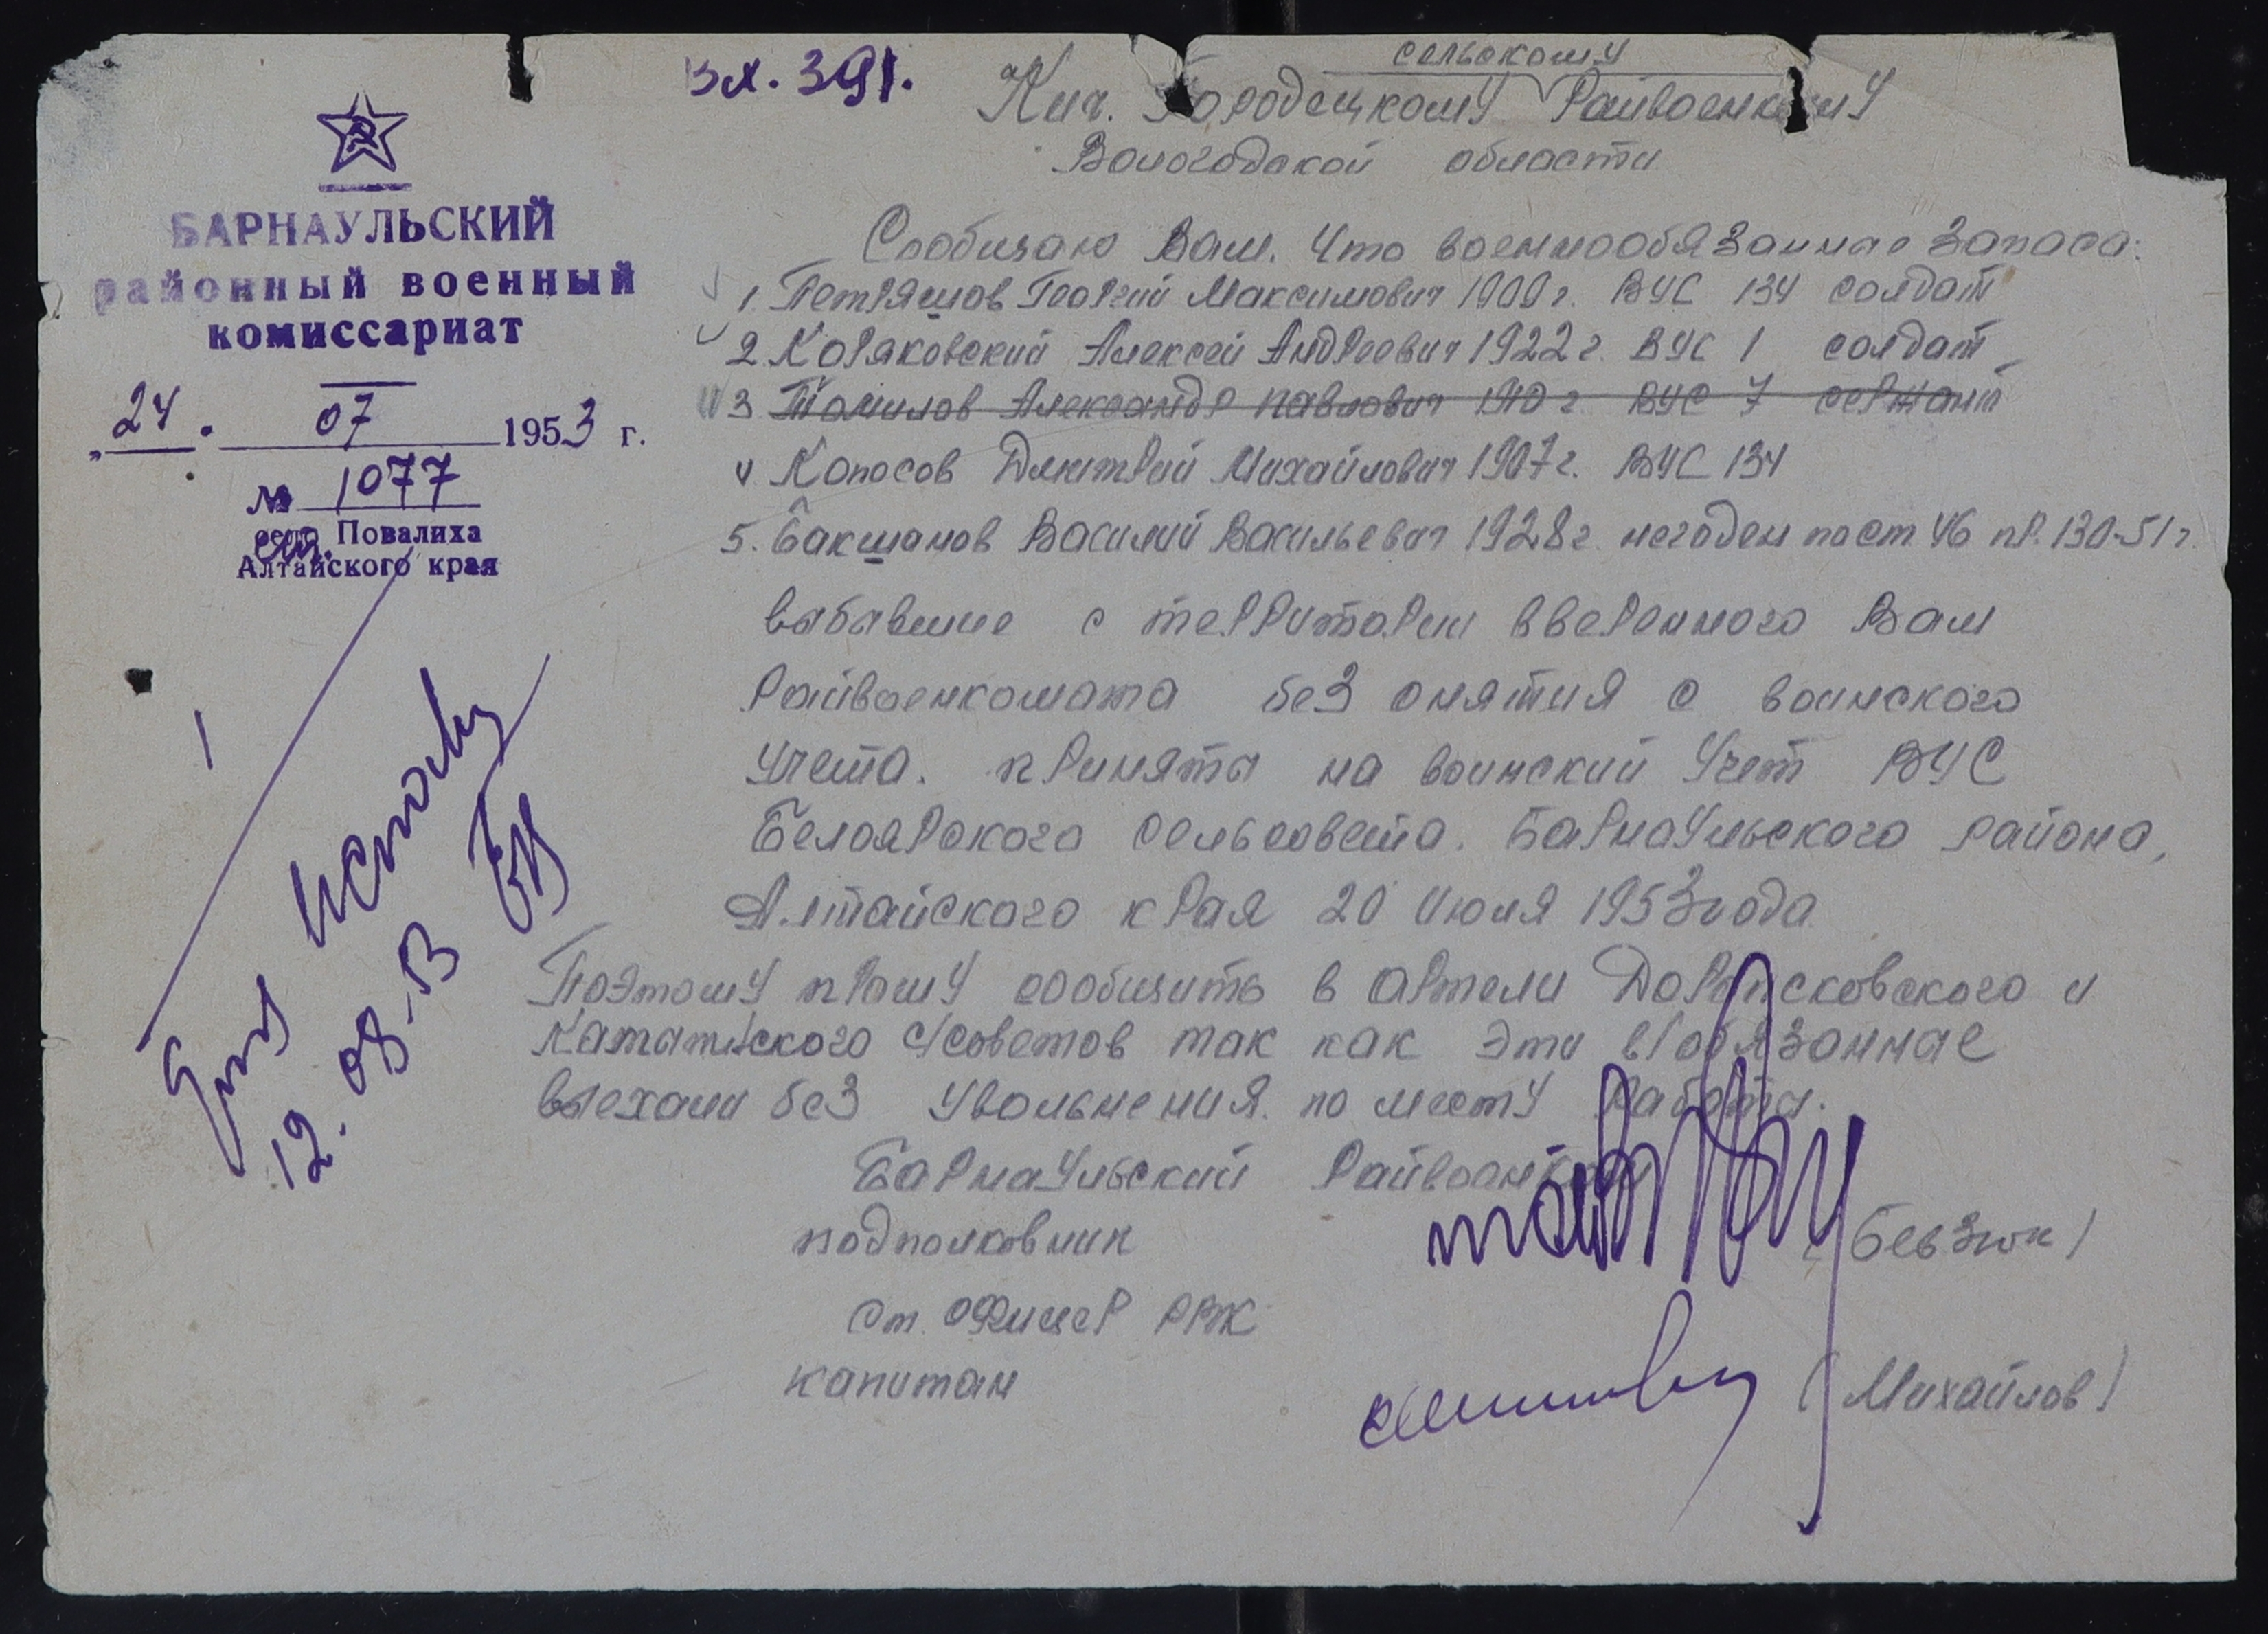 Вх. 391.
сельскому
Кич. Городецкому Райвоенкому
Вологодской области
БАРНАУЛЬСКИЙ
районный военный
комиссариат
„24. 07 1953 г.
№ 1077
село Повалиха
Алтайского края
Сообщаю Вам. Что военнообязанные запаса:
1. Петряшов Георгий Максимович 1909 г. ВУС 134 солдат
2. Коряковский Алексей Андреевич 1922 г. ВУС 1 солдат
3 Томилов Александр Павлович 1910 г ВУС 7 сержант
4 Копосов Дмитрий Михайлович 1907 г. ВУС 134
5. Бакшанов Василий Васильевич 1928 г. негоден по ст 46 пр. 130-51 г.
выбавшие с территории вверенного Вам
Райвоенкомата без снятия с воинского
учета. приняты на воинский учет ВУС
Белоярского сельсовета. Барнаульского района,
Алтайского края 20 июля 1953 года
Поэтому прошу сообщить в артели и
с/советов так как эти в/обязанные
выехали без увольнения по месту работы.
12. 08
Барнаульский Райвоенком
подполковник (Бевзюк)
Ст. офицер РВК
капитан (Михайлов)